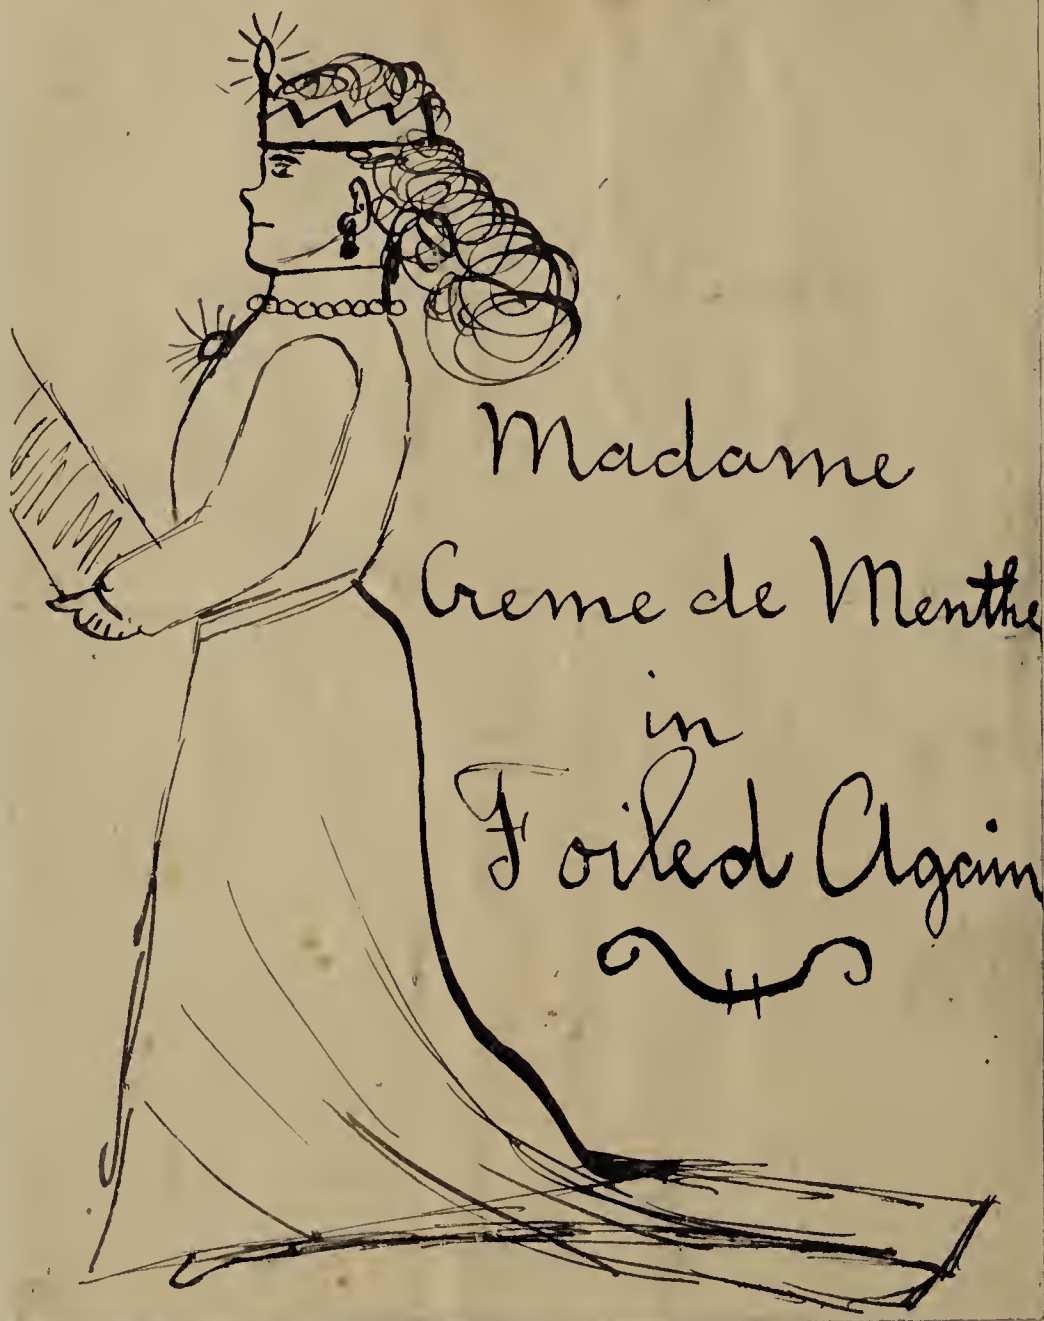 Madame
Creme de Menthe
in
Foiled Again